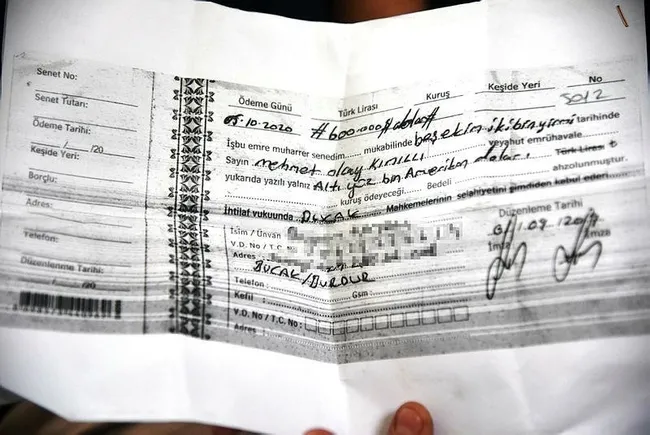 Senet No:
Senet Tutarı:
Ödeme Tarihi:
/ /20
Keşide Yeri:
Borçlu:
Adres:
Telefon:
Düzenlenme Tarihi:
/ /20
Ödeme Günü Türk Lirası Kuruş Keşide Yeri No
05.10.2020 #600.000$ dolar#
İşbu emre muharrer senedim mukabilinde beş ekim ikibinyirmi tarihinde
Sayın mehmet olay veyahut emrühavale
yukarıda yazılı yalnız Altı yüz bin Amerikan doları Türk Lirası
kuruş ödeyeceğim. Bedeli ahzolunmuştur.
İhtilaf vukuunda Mahkemelerinin selahiyetini şimdiden kabul ederim.
İsim / Ünvan Düzenleme Tarihi
V.D. No / T.C. No
Adres
BUCAK/BURDUR İmza İmza
Telefon Gsm:
Kefil :
V.D. No / T.C. No:
Adres